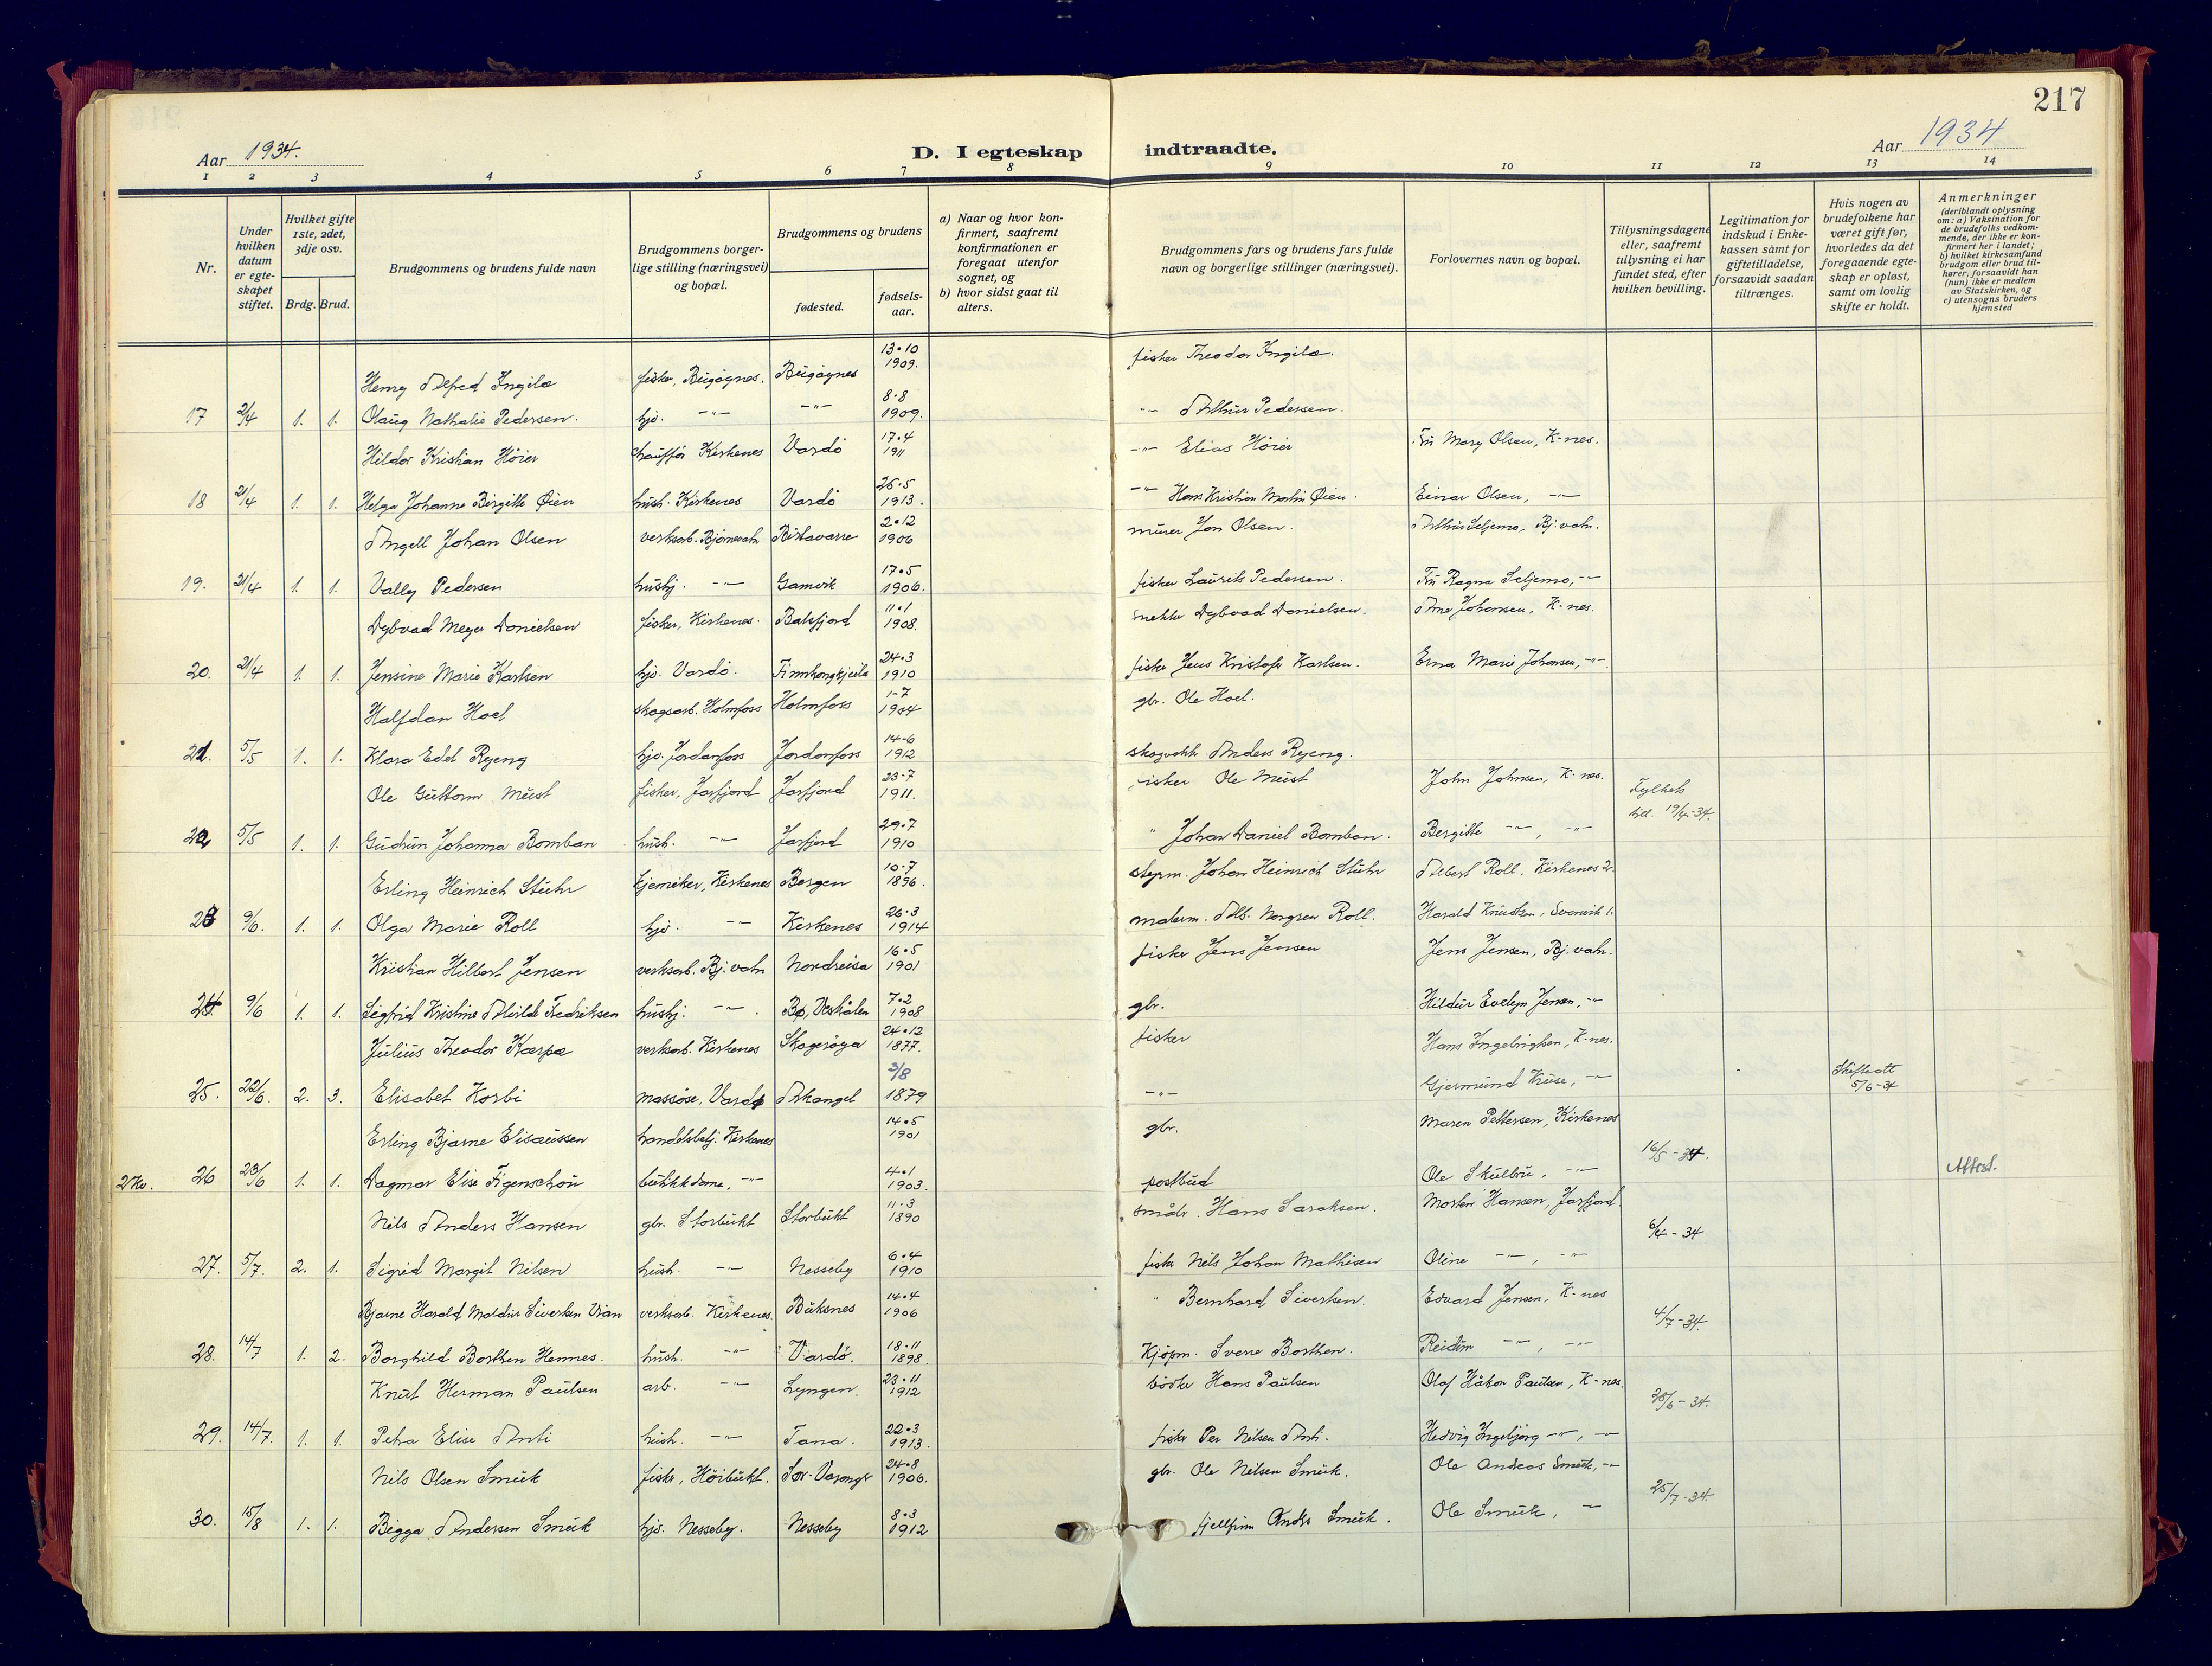 217
Aar 1934.
D. I egteskap indtraadte.
Aar 1934
1 2 3 4 5 6 7 8 9 10 11 12 13 14
Nr.
Under hvilken datum er egte- skapet stiftet.
Hvilket gifte 1ste, 2det, 3dje osv.
Brdg. Brud.
Brudgommens og brudens fulde navn
Brudgommens borger- lige stilling (næringsvei) og bopæl.
Brudgommens og brudens
fødested.
fødsels- aar.
a) Naar og hvor kon- firmert, saafremt konfirmationen er foregaat utenfor sognet, og
b) hvor sidst gaat til alters.
Brudgommens fars og brudens fars fulde navn og borgerlige stillinger (næringsvei).
Forlovernes navn og bopæl.
Tillysningsdagene eller, saafremt tillysning ei har fundet sted, efter hvilken bevilling.
Legitimation for indskud i Enke- kassen samt for giftetilladelse, forsaavidt saadan tiltrænges.
Hvis nogen av brudefolkene har været gift før, hvorledes da det foregaaende egte- skap er opløst, samt om lovlig skifte er holdt.
Anmerkninger (deriblandt oplysning om: a) Vaksination for de brudefolks vedkom- mende, der ikke er kon- firmert her i landet; b) hvilket kirkesamfund brudgom eller brud til- hører, forsaavidt han (hun) ikke er medlem av Statskirken, og c) utensogns bruders hjemsted
Henry Alfred Ingilæ fisker, Bugøynes. Bugøynes 13.10 1909. fisker Theodor Ingilæ.
17 2/4 1. 1. Olaug Nathalie Pedersen. hjv. -"- -"- 8.8 1909. -"- Arthur Pedersen.
Hildor Kristian Höier chauffør Kirkenes Vardö 17.4 1911 -"- Elias Höier Fru Mary Olsen, K-nes.
18 21/4 1. 1. Helga Johanne Birgitte Øien hush. Kirkenes Vardö 26.5 1913. -"- Hans Kristian Martin Øien. Einar Olsen, -"-
Angell Johan Olsen verksarb. Bjørnevatn Birtavarre 2.12 1906 murer Jon Olsen. Arthur Seljemo, Bj.vatn.
19. 21/4 1. 1. Vally Pedersen hushj. -"- Gamvik 17.5 1906. fisker Laurits Pedersen. Fru Ragna Seljemo, -"-
Dybvad Meyer Danielsen fisker, Kirkenes. Balsfjord 11.1 1908. snekker Dybvad Danielsen. Arne Johansen, K-nes.
20. 21/4 1. 1. Jensine Marie Karlsen hjv. Vardö. Finnkongkjeila 24.3 1910 fisker Jens Kristofer Karlsen. Erna Marie Johansen, -"-
Halfdan Hoel skogsarb. Holmfoss Holmfoss 1-7 1904 gbr. Ole Hoel.
21. 5/5 1. 1. Klara Edel Ryeng hjv. Jordanfoss Jordanfoss 14-6 1912 skogvokter Anders Ryeng.
Ole Guttorm Must fisker, Jarfjord Jarfjord 23-7 1911. fisker Ole Must John Johnsen, K-nes. Fylkets till. 19/4-34.
22 5/5 1. 1. Gudrun Johanna Bomban hush. -"- Jarfjord 29.7 1910 " Johan Daniel Bomban. Bergitte -"-, -"-
Erling Heinrich Stühr kjemiker, Kirkenes Bergen 10.7 1896. styrm. Johan Heinrich Stühr Albert Roll. Kirkenes 2.
23 9/6. 1. 1. Olga Marie Roll hjv. -"- Kirkenes 26.3 1914 malerm. Alb. Norgren Roll. Harald Knudtsen, Svanvik 1.
Kristian Hilbert Jensen verksarb. Bj.vatn Nordreisa 16.5 1901 fisker Jens Jensen Jens Jensen, Bj.vatn.
24 9/6 1. 1. Sigfrid Kristine Alvilde Fredriksen hushj. -"-. Bø, Vesterålen 7.2 1908 gbr. Hildur Evelyn Jensen, -"-
Julius Theodor Karpa verksarb. Kirkenes Skogerøya 24.12 1877. fisker Hans Ingebrigtsen, K-nes.
25. 22/6. 2. 3. Elisabet Korbi massøse, Vardø Arkangel 3/8 1879 -"- Gjermund Kruse, -"- Skifteatt 5/6-34
Erling Bjarne Elisæussen handelsbetj. Kirkenes 14.5 1901 gbr. Maren Pettersen, Kirkenes
2 Kv. 26 23/6 1. 1. Dagmar Elise Figenschou butikkdame, -"- 4.1 1903. postbud Ole Skulbru, -"- 16/5-34. Attest.
Nils Anders Hansen gbr. Storbukt Storbukt 11.3 1890 småbr. Hans Saraksen. Morten Hansen, Jarfjord
27. 5/7. 2. 1. Sigrid Margit Nilsen hush. -"- Nesseby 6.4 1910 fisker Nils Johan Mathisen Oline -"-, -"- 6/4-34
Bjarne Harald Moldur Sivertsen Vian verksarb. Kirkenes. Buksnes 14.4 1906 " Bernhard Sivertsen. Edvard Jensen, K-nes
28. 14/7 1. 2. Borghild Borthen Hennes. hush. -"- Vardö. 18.11 1898. Kjöpm. Sverre Borthen. Reidun -"-, -"- 4/7-34.
Knut Herman Paulsen arb. -"- Lyngen. 23.11 1912 bödker Hans Paulsen Olaf Håkon Paulsen, K-nes.
29. 14/7. 1. 1. Petra Elise Anti hush. -"- Tana. 22.3 1913. fisker Per Nilsen Anti. Hedvig Ingebjørg -"-, -"- 28/6-34.
Nils Olsen Smuk fisker, Höibukt. Sør-Varanger 24.8 1906. gbr. Ole Nilsen Smuk. Ole Andeas Smuk, -"-
30. 15/8 1. 1. Bigga Andersen Smuk hjv. Nesseby. Nesseby 8.3 1912 fjellfinn Anders Smuk. Ole Smuk, -"- 25/7-34.